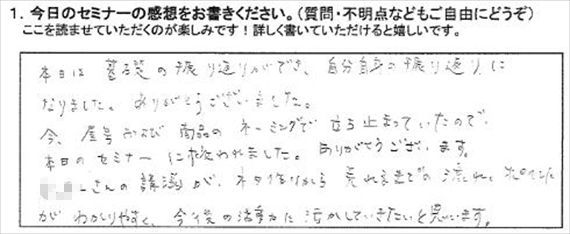 1. 今日のセミナーの感想をお書きください。（質問・不明点などもご自由にどうぞ）
ここを読ませていただくのが楽しみです！詳しく書いていただけると嬉しいです。
本日は基礎の振り返りができ、自分自身の振り返りに
なりました。ありがとうございました。
今、屋号および商品のネーミングで立ち止まっていたので、
本日のセミナーに救われました。ありがとうございます。
さんの講演が、ネタ作りから売れるまでの流れ、ポイント
がわかりやすく、今後の活動に活かしていきたいと思います。